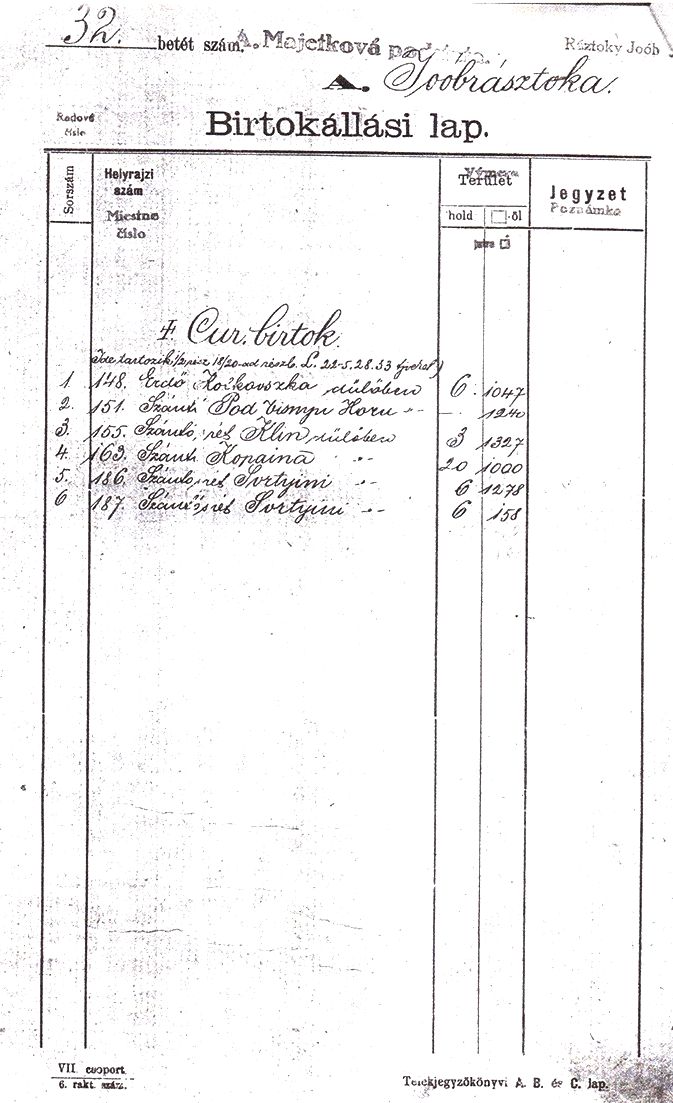 32. betét szám. A. Majetková podstata. Ráztoky Joób
A. Joobrásztoka.
Radové číslo
Birtokállási lap.
Sorszám Helyrajzi szám Miestne číslo Terület Výmera Jegyzet Poznámka
hold □-öl
jutra □
I. Cur. birtok.
Ide tartozik 1/2 rész 18/20-ad részb. L. 22-5. 28. 33
1. 148. Erdő Kočkovszka dülőben 6 1047
2. 151. Szántó Pod Horu -"- — 1240
3. 155. Szántó, rét Klin dülőben 3 1327
4. 163. Szántó Kopaina -"- 20 1000
5. 186. Szántó, rét Svrtyini -"- 6 1278
6 187. Szántó, rét Svrtyini -"- 6 158
VII. csoport.
6. rakt. szám.
Telekjegyzőkönyvi A. B. és C. lap.